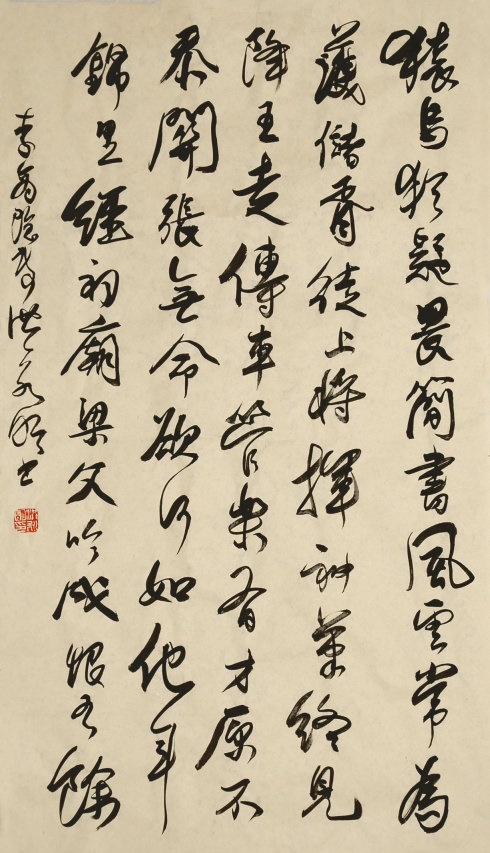 猿鳥猶疑畏簡書風雲常為
護儲胥徒上將揮神筆終見
降王走傳車管樂有才原不
忝關張無命欲何如他年
錦里經祠廟梁父吟成恨有餘
李商隱詩 書